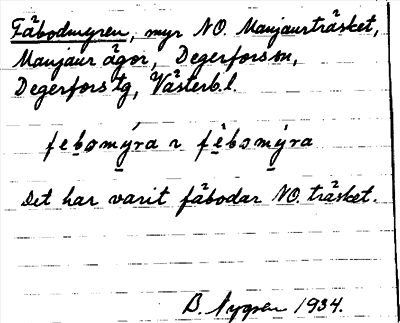 Fäbodmyren, myr NO. Manjaurträsket,
Manjaur ägor, Degerfors sn,
Degerfors tg, Västerb. l.
febomýra r fèbomýra
Det har varit fäbodar NO. träsket.
B. Nygren 1934.